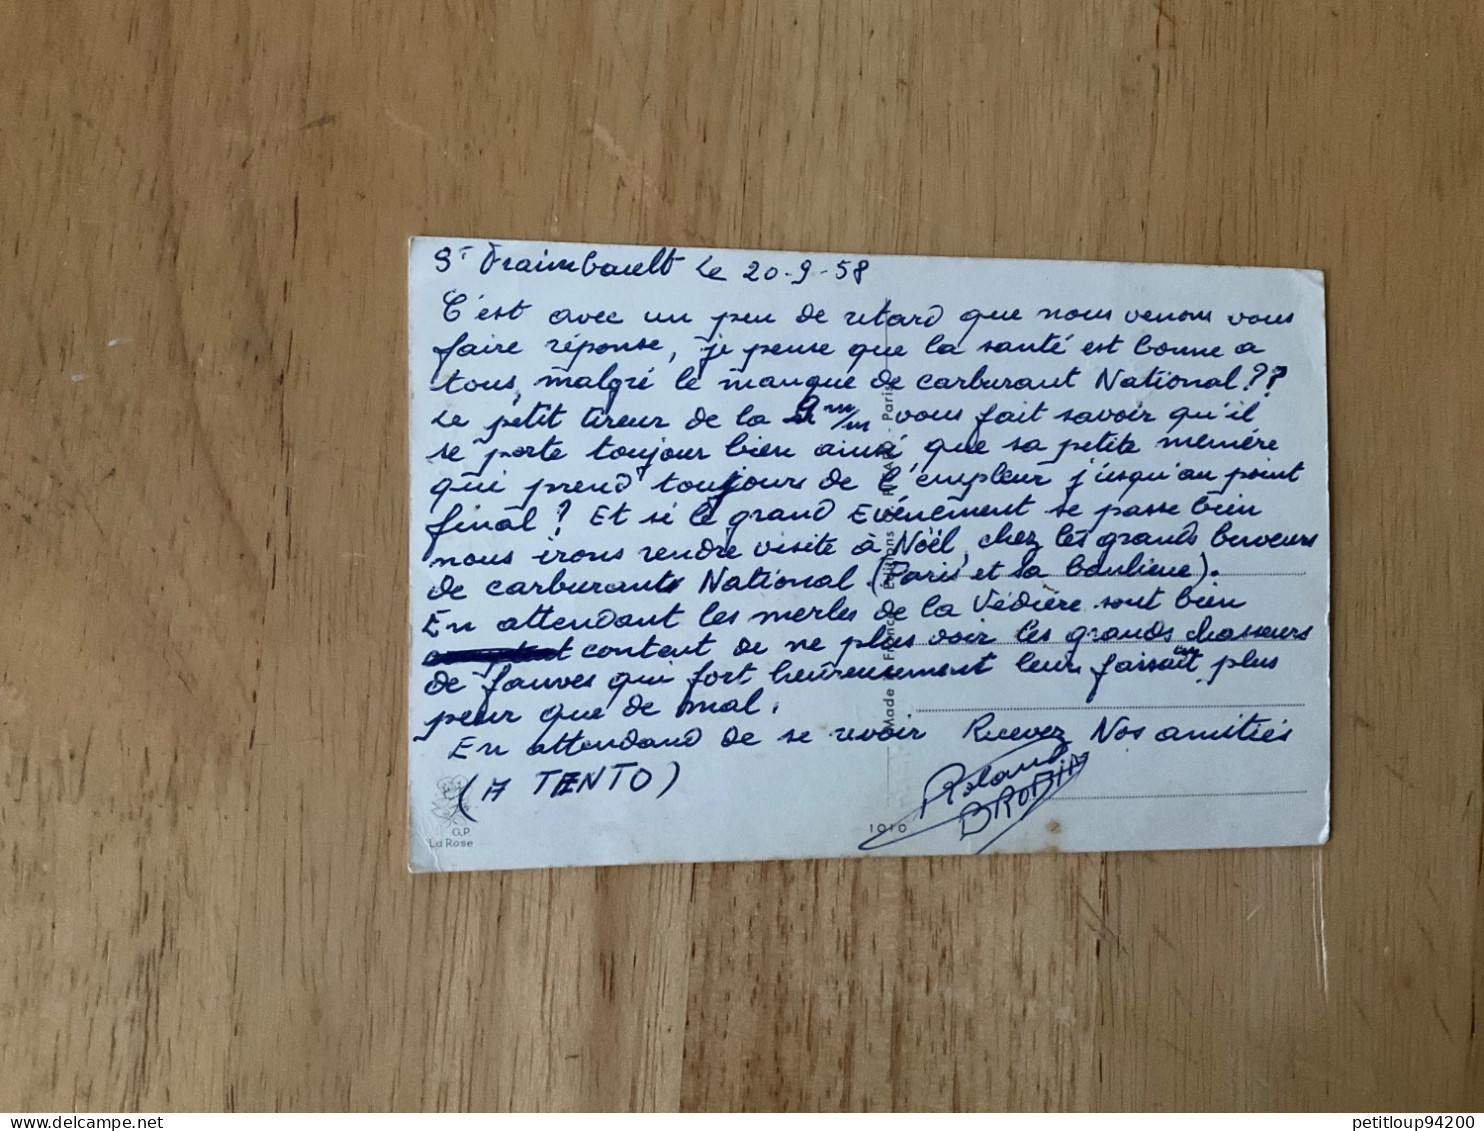 St Fraimbault le 20-9-58
C'est avec un peu de retard que nous venons vous
faire réponse, je pense que la santé est bonne a
tous, malgré le manque de carburant National ??
Le petit tireur de la 9 m/m vous fait savoir qu'il
se porte toujour bien ainsi que sa petite memére
qui prend toujours de l'empleur j'usqu'au point
final ? Et si le grand Evénement se passe bien
nous irons rendre visite à Noël, chez les grands buveurs
de carburants National (Paris et sa banlieue).
En attendant les merles de la Védiére sont bien
content de ne plus voir les grands chasseurs
de fauves qui fort heureusement leur faisait plus
peur que de mal.
En attendand de se revoir Recevez Nos amitiés
(A TENTO)
Roland
BRODIN
Made France Editions Paris
1010
G.P.
La Rose
delcampe.net
petitloup94200